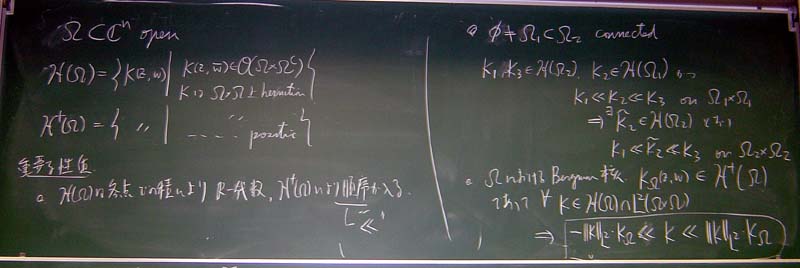 Ω⊂ℂⁿ open
ℋ(Ω)={K(z,w)| K(z,w̄)∈𝒪(Ω×Ωᶜ)
K は Ω×Ω上 hermitian}
ℋ⁺(Ω)={ 〃 | ----〃---- positive}
重要な性質
。ℋ(Ω)は各点での積により ℝ-代数, ℋ⁺(Ω)により順序が入る.
"≪"
。φ≠Ω₁⊂Ω₂ connected
K₁,K₃∈ℋ(Ω₂), K₂∈ℋ(Ω₁)
K₁≪K₂≪K₃ on Ω₁×Ω₁
⇒ ∃K̃₂∈ℋ(Ω₂)
K₁≪K̃₂≪K₃ on Ω₂×Ω₂
。Ωにおける Bergman 核 K_Ω(z,w)∈ℋ⁺(Ω)
∀K∈ℋ(Ω)∩L²(Ω×Ω)
⇒ -‖K‖_{L²}·K_Ω ≪ K ≪ ‖K‖_{L²}·K_Ω